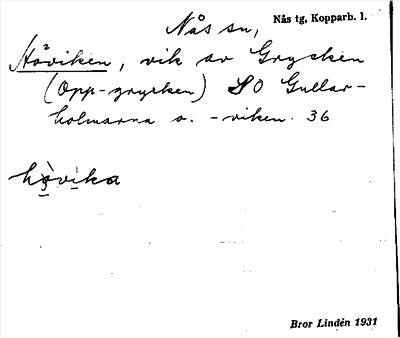 Nås sn, Nås tg, Kopparb. l.
Håviken, vik av Grycken
(Opp-grycken) SO Gullar-
holmarna o. -viken. 36
håvika
Bror Lindén 1931